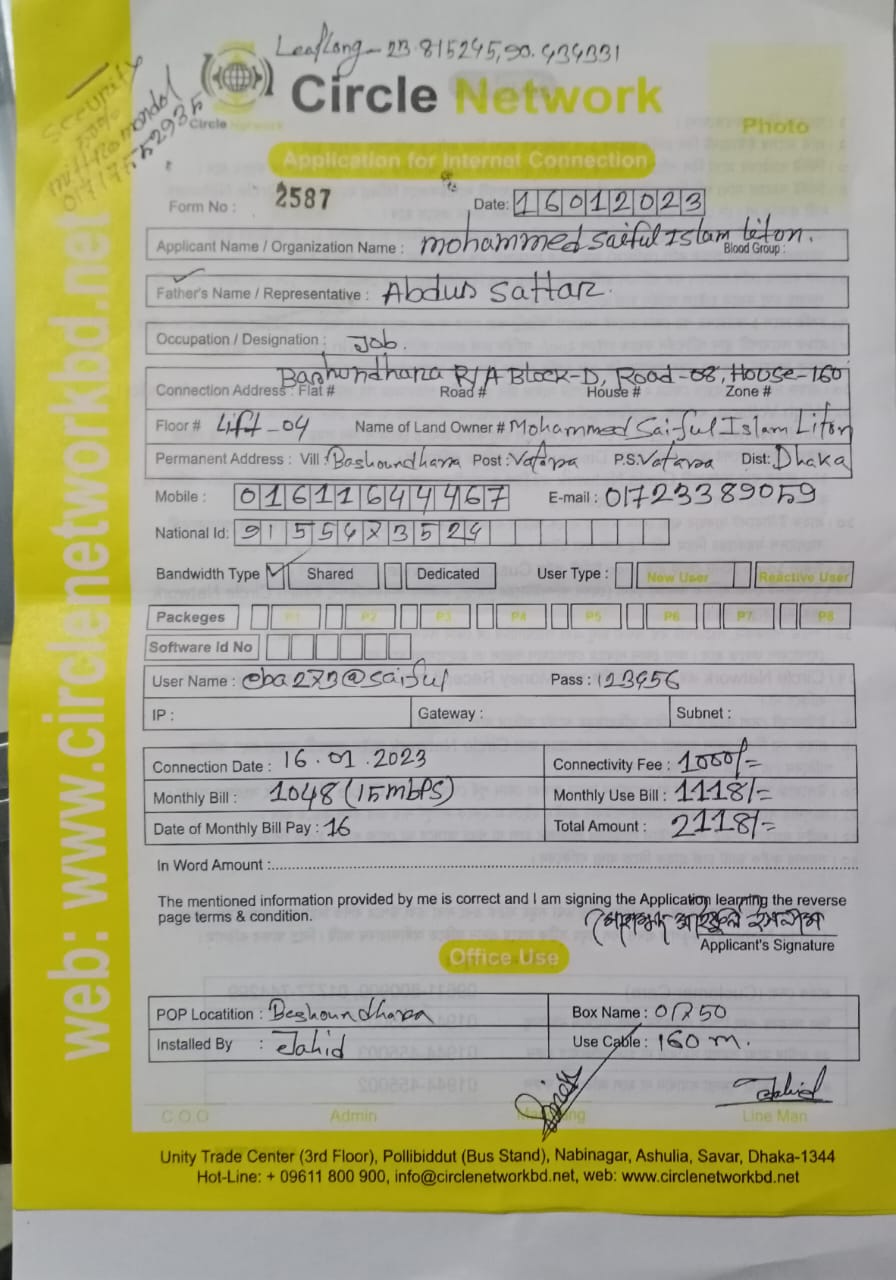 Leaflong-23.815245,90.434331
Security
01717552935
Circle Network
Circle Network
Photo
Application for Internet Connection
Form No : 2587
Date: 16012023
Applicant Name / Organization Name : mohammed Saiful Islam Liton.
Blood Group :
Father's Name / Representative : Abdus Sattar.
Occupation / Designation : Job.
Bashundhara R/A Block-D, Road-08, House-160
Connection Address : Flat # Road # House # Zone #
Floor # Lift-04 Name of Land Owner # Mohammed Saiful Islam Liton
Permanent Address : Vill : Bashoundhara Post : Vatara P.S: Vatara Dist: Dhaka
Mobile : 01611644467 E-mail : 01723389059
National Id: 9155473524
Bandwidth Type Shared Dedicated User Type : New User Reactive User
Packeges P1 P2 P3 P4 P5 P6 P7 P8
Software Id No
User Name : cba273@saiful Pass : 123456
IP : Gateway : Subnet :
Connection Date : 16.01.2023 Connectivity Fee : 1000/=
Monthly Bill : 1048 (15mbps) Monthly Use Bill : 1118/=
Date of Monthly Bill Pay : 16 Total Amount : 2118/=
In Word Amount :
The mentioned information provided by me is correct and I am signing the Application learning the reverse
page terms & condition.
Applicant's Signature
Office Use
POP Locatition : Beshoundhara Box Name : 0/250
Installed By : Jahid Use Cable : 160 m.
Jahid
C.O.O Admin Line Man
web: www.circlenetworkbd.net
Unity Trade Center (3rd Floor), Pollibiddut (Bus Stand), Nabinagar, Ashulia, Savar, Dhaka-1344
Hot-Line: + 09611 800 900, info@circlenetworkbd.net, web: www.circlenetworkbd.net